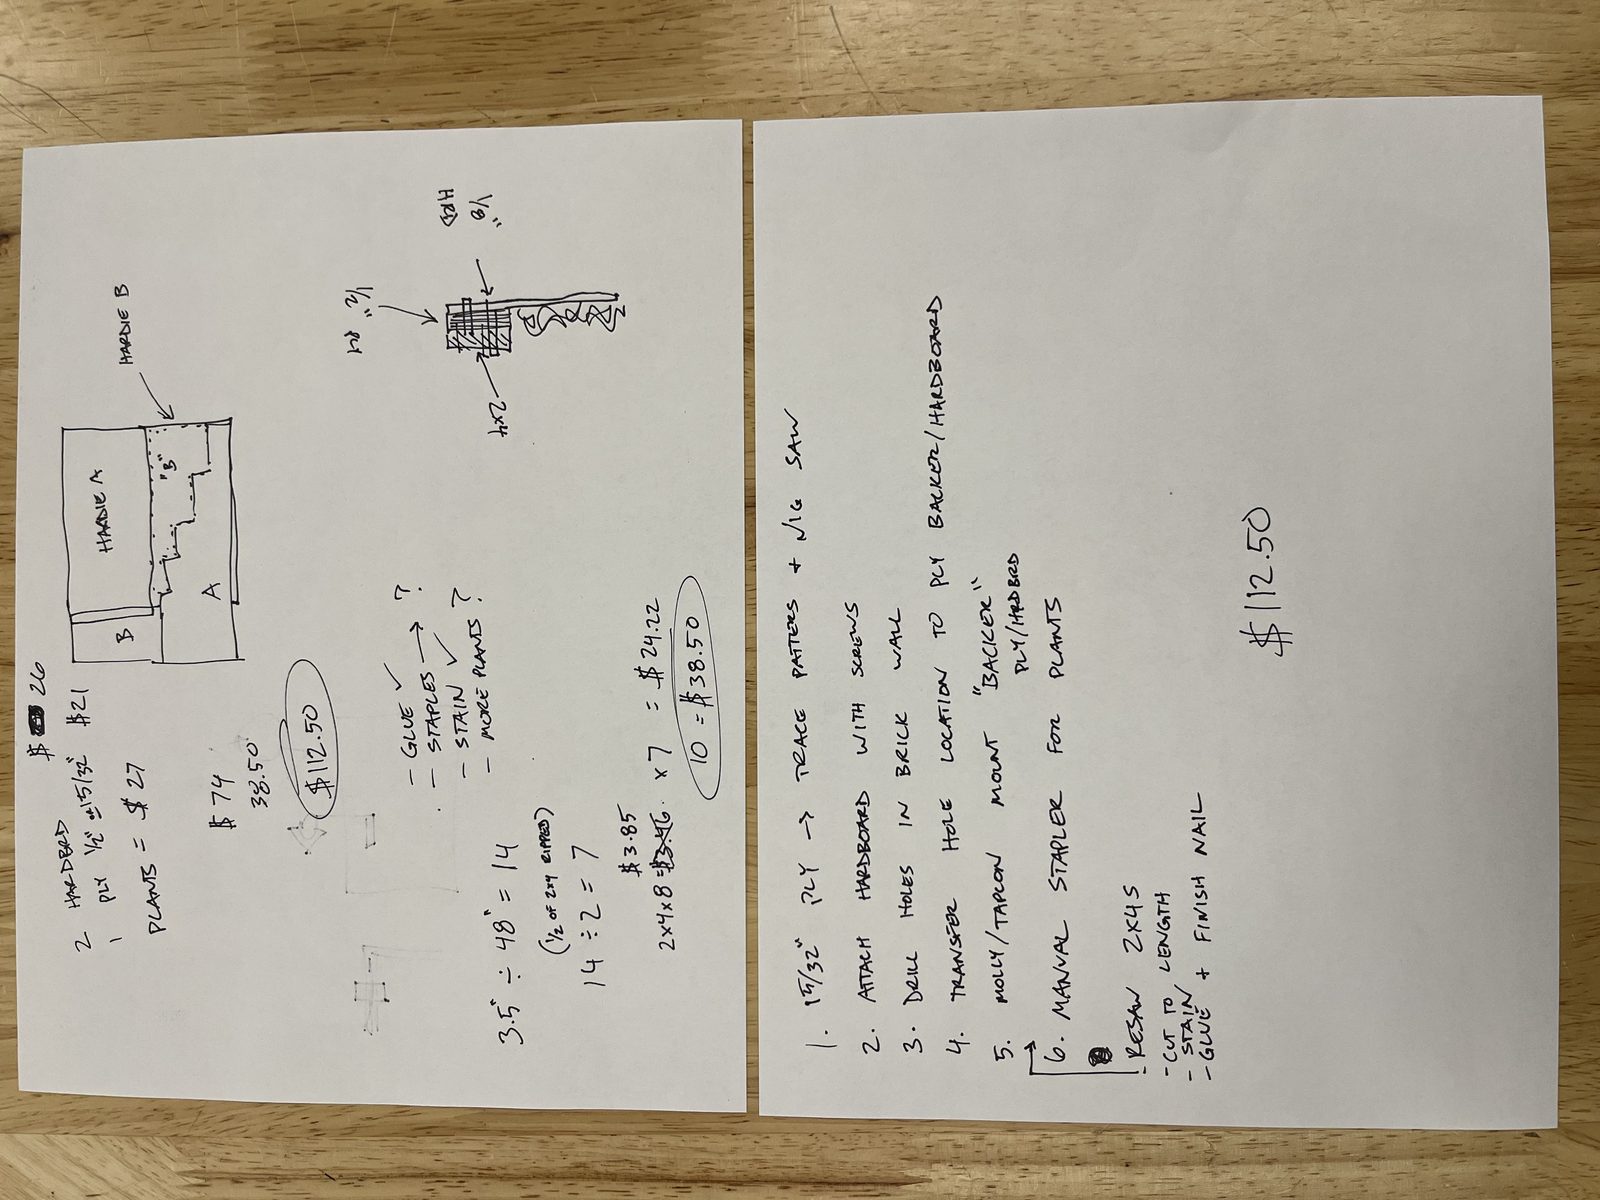 2 HARDBRD $ 26
1 PLY 1/2" 15/32" $21
PLANTS = $ 27
$ 74
38.50
$112.50
HARDIE A
B
"B"
A
HARDIE B
- GLUE ✓
- STAPLES → ?
- STAIN ✓
- MORE PLANTS ?
1/2"
1/8"
HRD
2x4
3.5" ÷ 48" = 14
(1/2 OF 2x4 RIPPED)
14 ÷ 2 = 7
$3.85
2x4x8 = $3.46 x 7 = $24.22
10 = $38.50
1. 15/32" PLY → TRACE PATTERS + JIG SAW
2. ATTACH HARDBOARD WITH SCREWS
3. DRILL HOLES IN BRICK WALL
4. TRANSFER HOLE LOCATION TO PLY BACKER/HARDBOARD
5. MOLLY/TAPCON MOUNT "BACKER"
PLY/HRDBRD
6. MANUAL STAPLER FOR PLANTS
- RESAW 2X4S
- CUT TO LENGTH
- STAIN
- GLUE + FINISH NAIL
$112.50